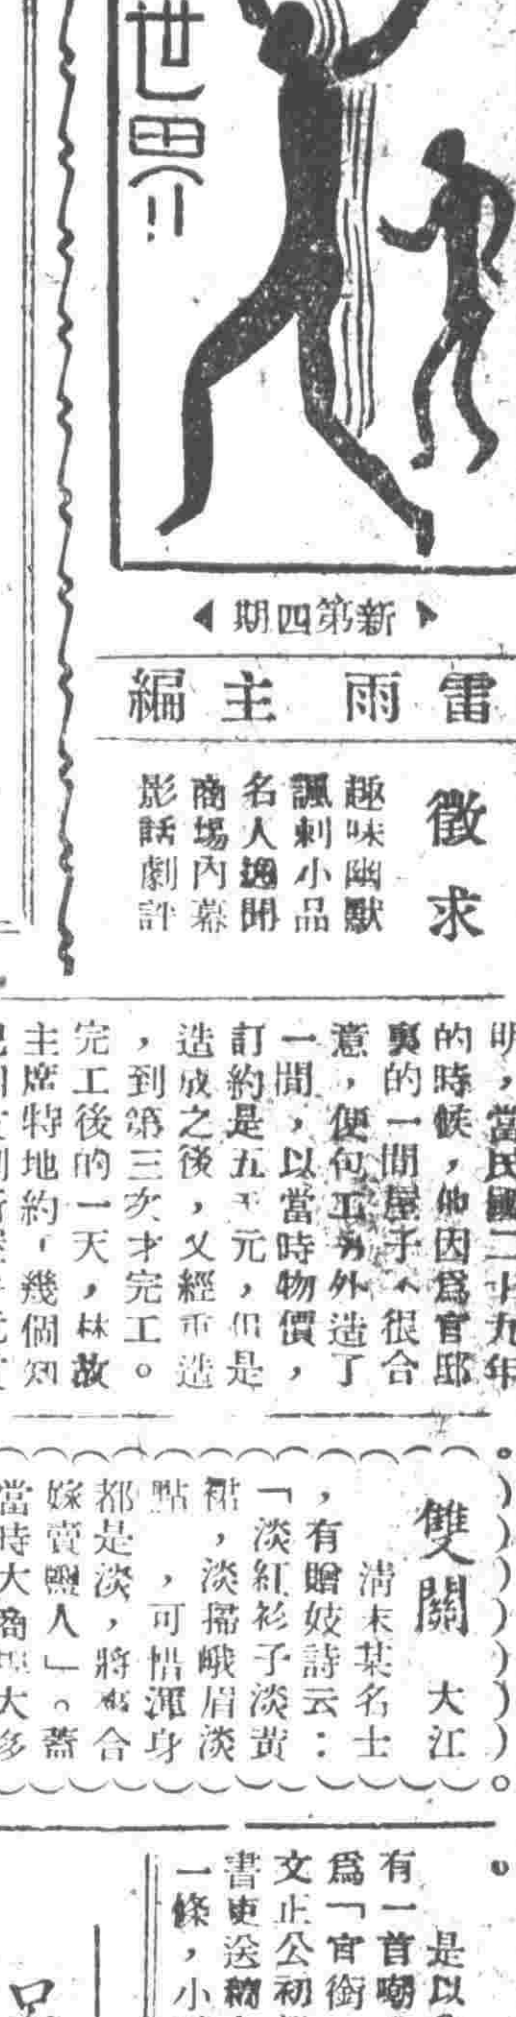 世界
新第四期
雷雨主編
徵求
趣味幽默
諷刺小品
名人趣聞
商場內幕
影話劇評
明，當民國二十九年
的時候，他因爲官邸
裏的一間屋子不很合
意，便向工另外造了
一間，以當時物價，
訂約是五千元，但是
造成之後，又經重造
，到第三次才完工。
完工後的一天，林故
主席特地約幾個知
雙關
大江
清末某名士
，有贈妓詩云：
「淡紅衫子淡黄
裙，淡掃峨眉淡
點，可惜渾身
都是淡，將來合
嫁賣鹽人」。蓋
當時大商大多
是以
有一首嘲
爲「官銜
文正公初
書吏送
一條，小